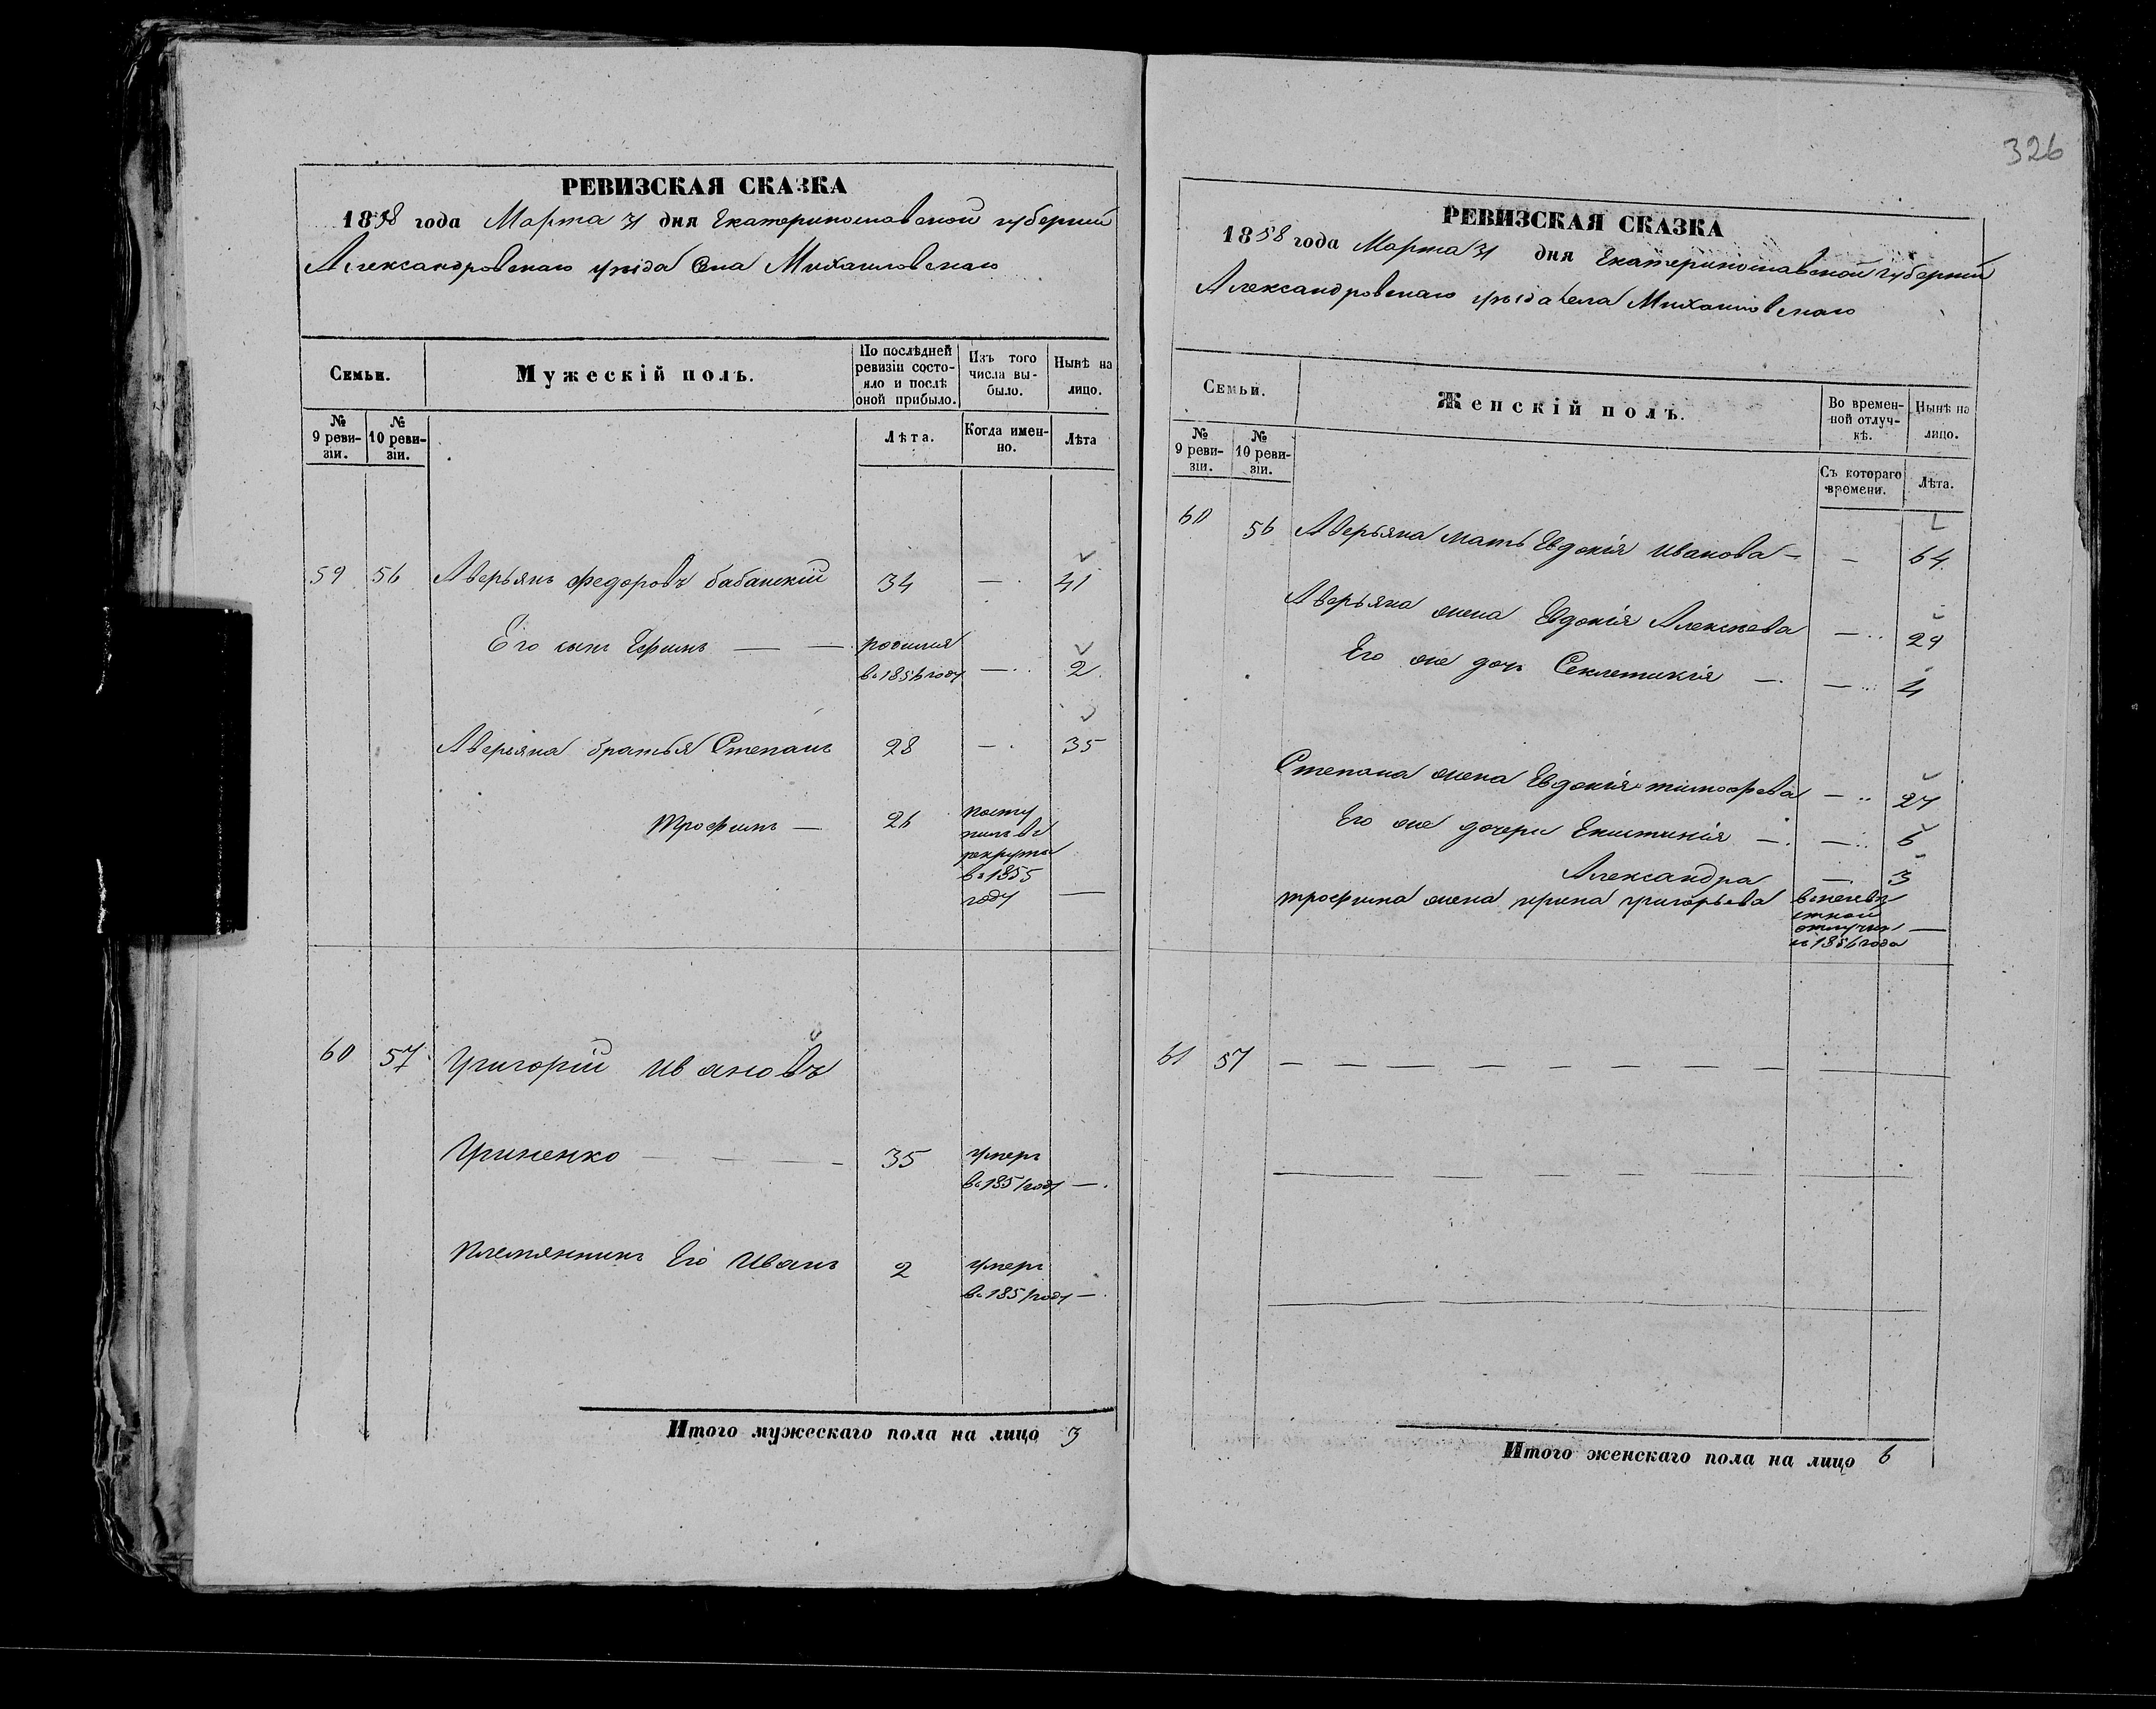 326
РЕВИЗСКАЯ СКАЗКА
1858 года Марта 31 дня Екатеринославской губерніи
Александровскаго уѣзда Села Михайловскаго
Семьи. Мужескій полъ. По послѣдней ревизіи состояло и послѣ оной прибыло. Изъ того числа выбыло. Нынѣ на лицо.
№ 9 ревизіи. № 10 ревизіи. Лѣта. Когда именно. Лѣта
59 56 Аверьянъ Федоровъ Бабанскій 34 — 41
Его сынъ Ефимъ — — родился
въ 1856 году — 2
Аверьяна братья Степанъ 28 — 35
Трофимъ — 26 посту
пилъ въ
рекруты
въ 1855
году —
60 57 Григорій Ивановъ
Гриненко — — — 35 умеръ
въ 1851 году —
Племянникъ Его Иванъ 2 умеръ
въ 1851 году —
Итого мужескаго пола на лицо 3
РЕВИЗСКАЯ СКАЗКА
1858 года Марта 31 дня Екатеринославской губерніи
Александровскаго уѣзда села Михайловскаго
Семьи. Женскій полъ. Во временной отлучкѣ. Нынѣ на лицо.
№ 9 ревизіи. № 10 ревизіи. Съ котораго времени. Лѣта.
60 56 Аверьяна мать Евдокія Иванова — — 64
Аверьяна жена Евдокія Алексѣева — 29
Его же дочь Секлетикія — — 4
Степана жена Евдокія Тимофѣева — 27
Его же дочери — — 6
Александра — 3
Трофима жена Ирина Григорьева
отлучкѣ —
съ 1856 года
61 57 — — — — — — — —
Итого женскаго пола на лицо 6